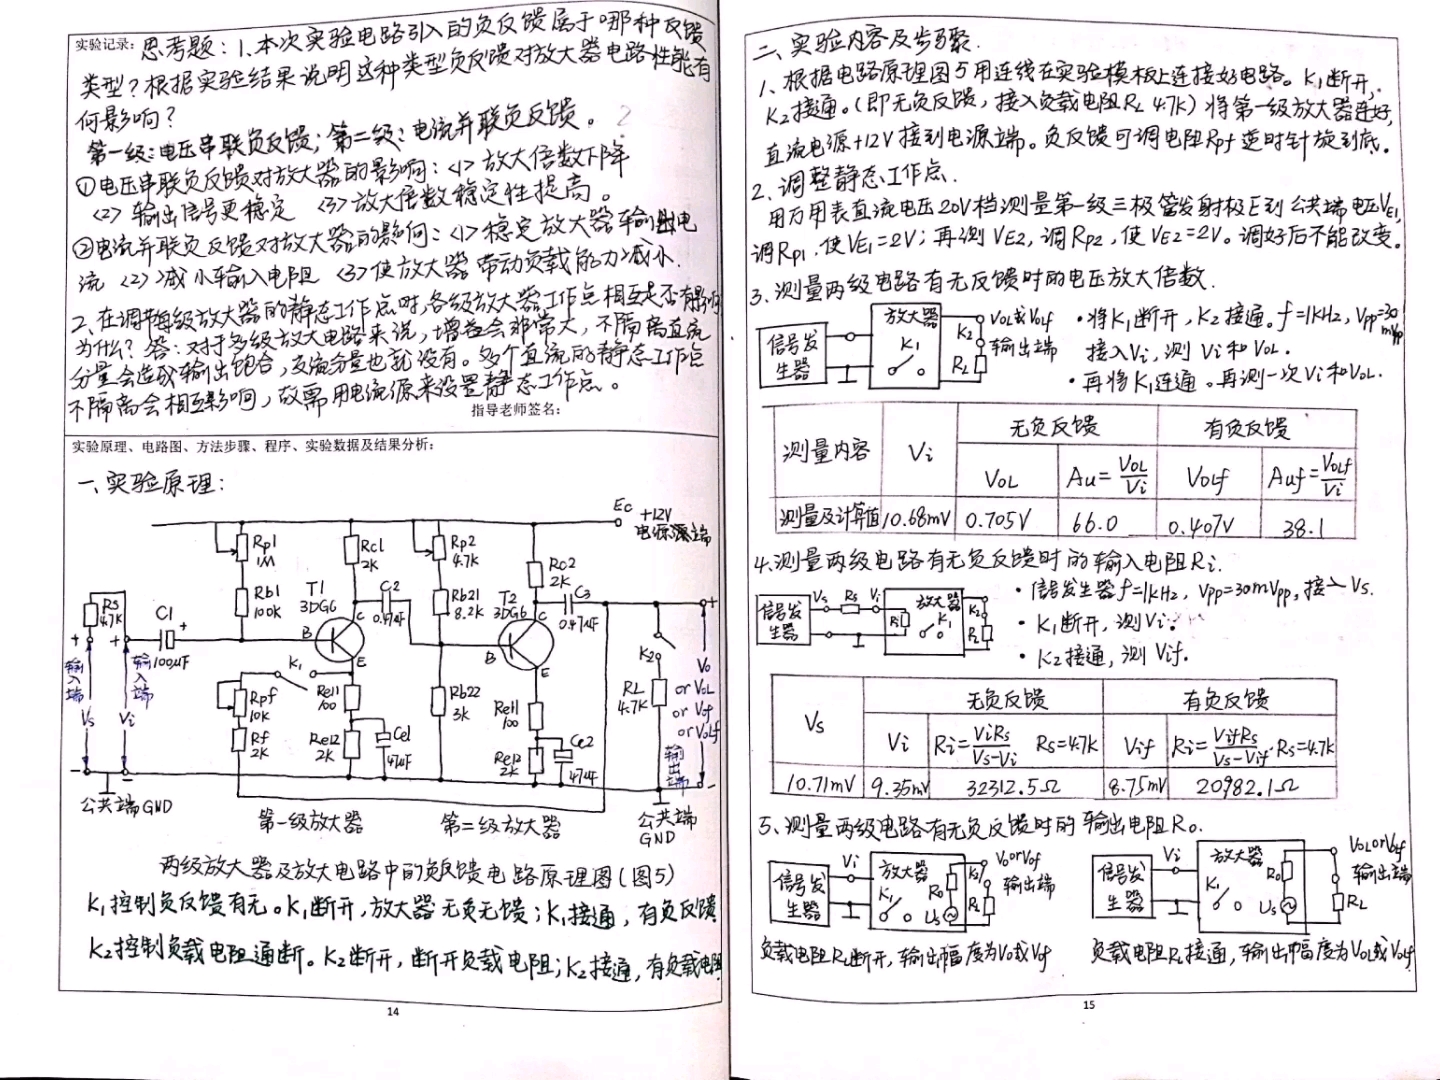 实验记录: 思考题：1.本次实验电路引入的负反馈属于哪种反馈
类型？根据实验结果说明这种类型负反馈对放大器电路性能有
何影响？
第一级：电压串联负反馈；第二级：电流并联负反馈。
①电压串联负反馈对放大器的影响：<1>放大倍数下降
<2>输出信号更稳定 <3>放大倍数稳定性提高。
②电流并联负反馈对放大器的影响：<1>稳定放大器输出电
流 <2>减小输入电阻 <3>使放大器带动负载能力减小.
2、在调节每级放大器的静态工作点时,各级放大器工作点相互是否有影响
为什么？答：对于多级放大电路来说，增益会非常大，不隔离直流
分量会造成输出饱合，交流分量也就没有。多个直流的静态工作点
不隔离会相互影响，故需用电流源来设置静态工作点。
指导老师签名：
实验原理、电路图、方法步骤、程序、实验数据及结果分析：
一、实验原理：
Ec +12V
电源源端
Rp1 1M
Rc1 2K
Rp2 4.7K
Rc2 2K
Rb1 100K
T1 3DG6
C2 0.47uF
Rb21 8.2K
T2 3DG6
C3 0.47uF
Rs 4.7K
C1 100μF
B C E
B C E
K1
K2
输入端 Vs
输入端 Vi
Rpf 10K
Rf 2K
Re11 100
Re12 2K
Ce1 47uF
Rb22 3K
Re11 100
Re12 2K
Ce2 47uF
RL 4.7K
Vo
or VoL
or Vof
or VoLf
输出端
公共端GND
第一级放大器
第二级放大器
公共端
GND
两级放大器及放大电路中的负反馈电路原理图(图5)
K1控制负反馈有无。K1断开，放大器无负无馈；K1接通，有负反馈
K2控制负载电阻通断。K2断开，断开负载电阻；K2接通，有负载电阻
14
二、实验内容及步骤.
1、根据电路原理图5用连线在实验模板上连接好电路。K1断开,
K2接通。(即无负反馈，接入负载电阻RL 4.7K)将第一级放大器连好,
直流电源+12V接到电源端。负反馈可调电阻Rpf逆时针旋到底。
2.调整静态工作点.
用万用表直流电压20V档测量第一级三极管发射极E到公共端电压VE1,
调Rp1,使VE1=2V；再测VE2,调Rp2,使VE2=2V。调好后不能改变。
3.测量两级电路有无反馈时的电压放大倍数.
信号发生器
放大器
K1
K2
RL
VoL或VoLf
输出端
·将K1断开，K2接通。f=1kHz，Vpp=30mVpp
接入Vi，测Vi和VoL.
·再将K1连通。再测一次Vi和VoL.
测量内容 Vi 无负反馈 有负反馈
VoL Au=VoL/Vi VoLf Auf=VoLf/Vi
测量及计算值 10.68mV 0.705V 66.0 0.407V 38.1
4.测量两级电路有无负反馈时的输入电阻Ri.
信号发生器
Vs Rs Vi
放大器
Ri
K1
K2
RL
·信号发生器f=1kHz，Vpp=30mVpp，接入Vs.
·K1断开，测Vi。
·K2接通，测Vif.
Vs 无负反馈 有负反馈
Vi Ri=ViRs/Vs-Vi Rs=4.7K Vif Ri=VifRs/Vs-Vif·Rs=4.7K
10.71mV 9.35mV 32312.5Ω 8.75mV 20982.1Ω
5、测量两级电路有无负反馈时的输出电阻Ro.
信号发生器
Vi
放大器
K1
Ro
Us
K2
RL
VoorVof
输出端
信号发生器
Vi
放大器
K1
Ro
Us
VoLorVoLf
输出端
RL
负载电阻RL断开，输出幅度为Vo或Vof
负载电阻RL接通，输出幅度为VoL或VoLf
15